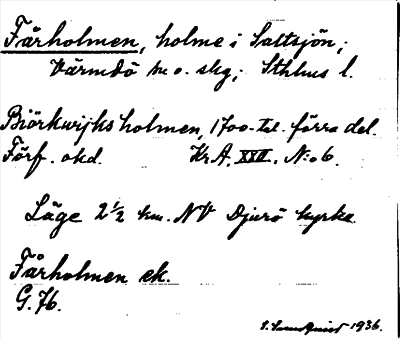 Fårholmen, holme i Saltsjön;
Värmdö m. o. skg; Sthlms l.
Biörkwijks holmen, 1700-tal. förra del.
Förf. okd. Kr.A. XXII. N:o 6.
Läge 2½ km. NV Djurö kyrka.
Fårholmen ek.
G. 76.
1936.